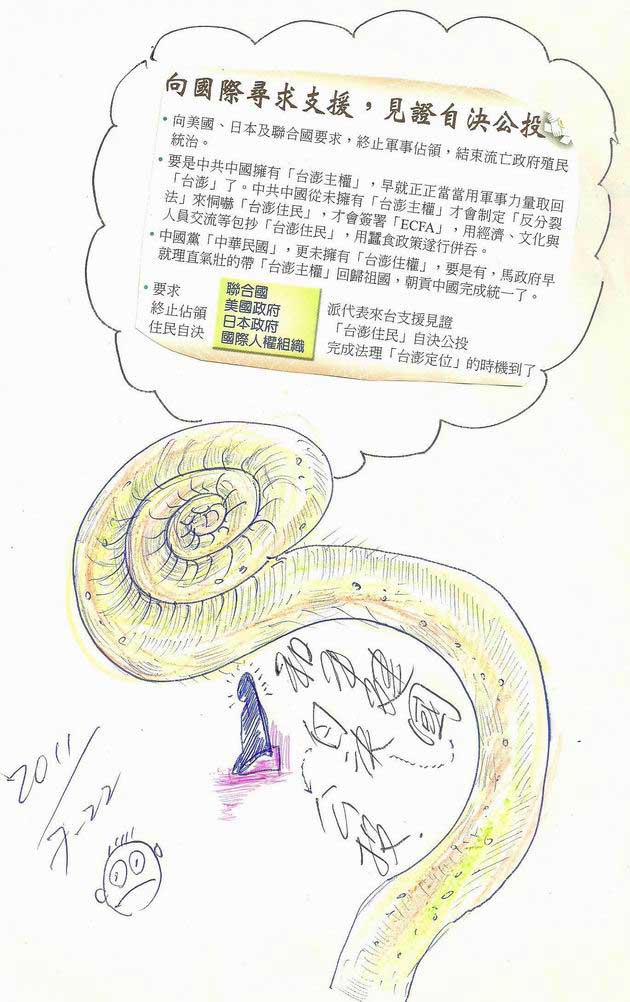 向國際尋求支援，見證自決公投
• 向美國、日本及聯合國要求，終止軍事佔領，結束流亡政府殖民
統治。
• 要是中共中國擁有「台澎主權」，早就正正當當用軍事力量取回
「台澎」了。中共中國從未擁有「台澎主權」才會制定「反分裂
法」來恫嚇「台澎住民」，才會簽署「ECFA」，用經濟、文化與
人員交流等包抄「台澎住民」，用蠶食政策遂行併吞。
• 中國黨「中華民國」，更未擁有「台澎住權」，要是有，馬政府早
就理直氣壯的帶「台澎主權」回歸祖國，朝貢中國完成統一了。
• 要求
終止佔領
住民自決
聯合國
美國政府
日本政府
國際人權組織
派代表來台支援見證
「台澎住民」自決公投
完成法理「台澎定位」的時機到了
自決
公投
2011/7-22